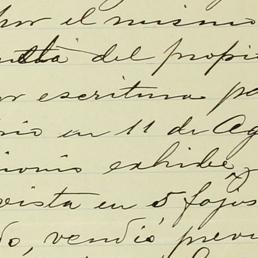 por el mismo
del propi
or escritura pa
rio en 11 de Ag
ionis exhibe y
vista en 5 fojas
do, vendió previ